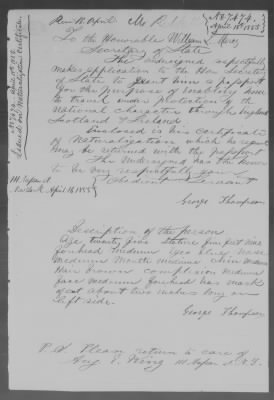 No 7,474.
April 18th 1853
To the Honorable William L. Marcy
Secretary of State
The undersigned respectfully
makes application to the Hon Secretary
of State to grant him a passport
for the purpose of enabling him
to travel under protection of the
National character through England
Scotland & Ireland.
Enclosed is his certificate
of Naturalization which he requests
may be returned with the passport
The Undersigned has the honor
to be very respectfully your
Obedient Servant
New York April 16 1853
George Thompson
Description of the person
Age twenty five stature five feet nine
forehead medium eyes blue nose
medium mouth medium chin medium
Hair brown complexion medium
face medium forehead has mark
of cut about two inches long on
left side.
George Thompson
P.S. Please return to care of